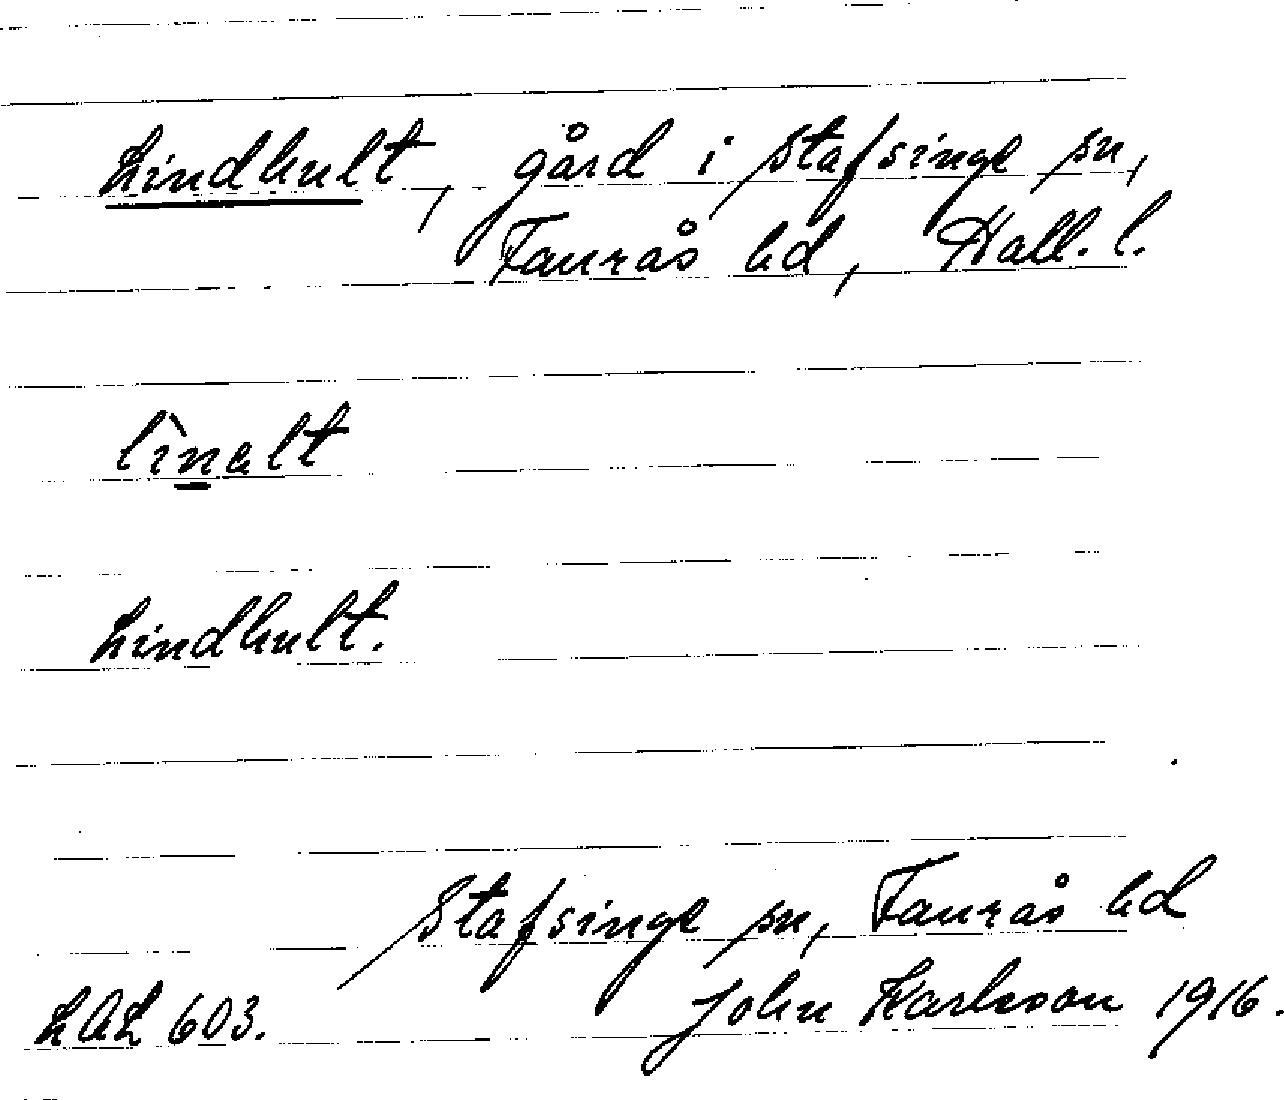 Lindhult, gård i Stafsinge sn,
Faurås hd, Hall. l.
lìnalt
Lindhult.
Stafsinge sn, Faurås hd
LAL 603. John Karlsson 1916.